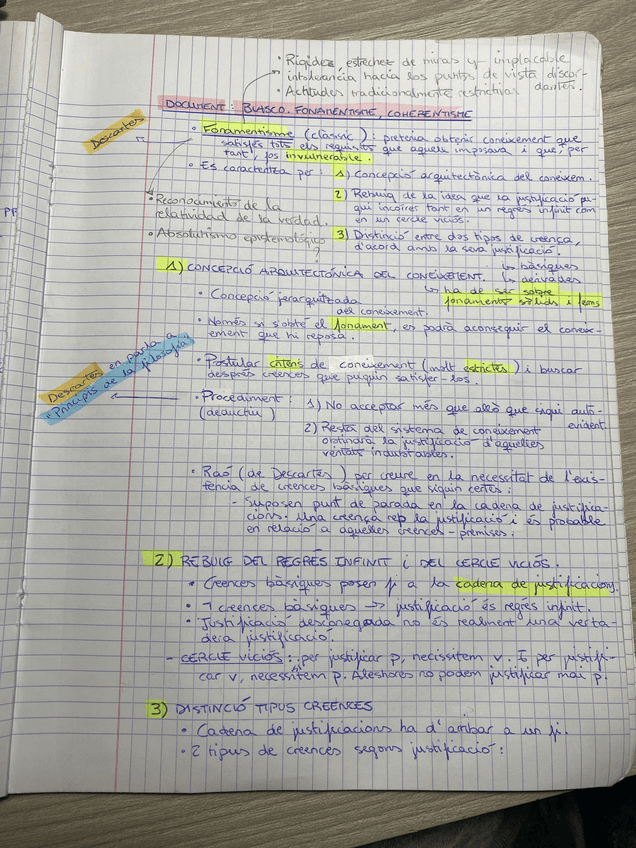 · Rigidez, estrechez de miras y implacable
intolerancia hacia los puntos de vista discor-
dantes.
· Actitudes tradicionalmente restrictivas
DOCUMENT: BLASCO. FONAMENTISME, COHERENTISME
Descartes
· Fonamentisme (clàssic): pretenia obtenir coneixement que
satisfés tots els requisits que aquell imposava i que, per
tant, fos invulnerable.
· Es caracteritza per: 1) Concepció arquitectònica del coneixem.
2) Rebuig de la idea que la justificació pu-
gui incórrer tant en un regrés infinit com
en un cercle viciós.
3) Distinció entre dos tipus de creença,
d'acord amb la seva justificació.
↳ bàsiques
↳ derivades
· Reconocimiento de la
relatividad de la verdad.
· Absolutismo epistemológico
?
1) CONCEPCIÓ ARQUITECTÒNICA DEL CONEIXEMENT.
↳ ha de ser sobre
fonaments sòlids i ferms
· Concepció jerarquitzada
del coneixement.
· Només si s'obté el fonament, es podrà aconseguir el coneix-
ement que hi reposa.
· Postular criteris de coneixement (molt estrictes) i buscar
després creences que puguin satisfer-los.
Descartes en parla a
"Principis de la filosofia"
· Procediment: 1) No acceptar més que allò que sigui auto-
(deductiu) evident.
2) Resta del sistema de coneixement
obtindrà la justificació d'aquelles
veritats indubtables.
· Raó (de Descartes) per creure en la necessitat de l'exis-
tència de creences bàsiques que siguin certes:
- Suposen punt de parada en la cadena de justifica-
cions. Una creença rep la justificació i és probable
en relació a aquelles creences-premises.
2) REBUIG DEL REGRÉS INFINIT i DEL CERCLE VICIÓS.
· Creences bàsiques posen fi a la cadena de justificacions.
· ¬ creences bàsiques → justificació és regrés infinit.
· Justificació desconeguda no és realment una verta-
dera justificació.
- CERCLE VICIÓS: per justificar p, necessitem v. I per justifi-
car v, necessitem p. Aleshores no podem justificar mai p.
3) DISTINCIÓ TIPUS CREENCES
· Cadena de justificacions ha d'arribar a un fi.
· 2 tipus de creences segons justificació: